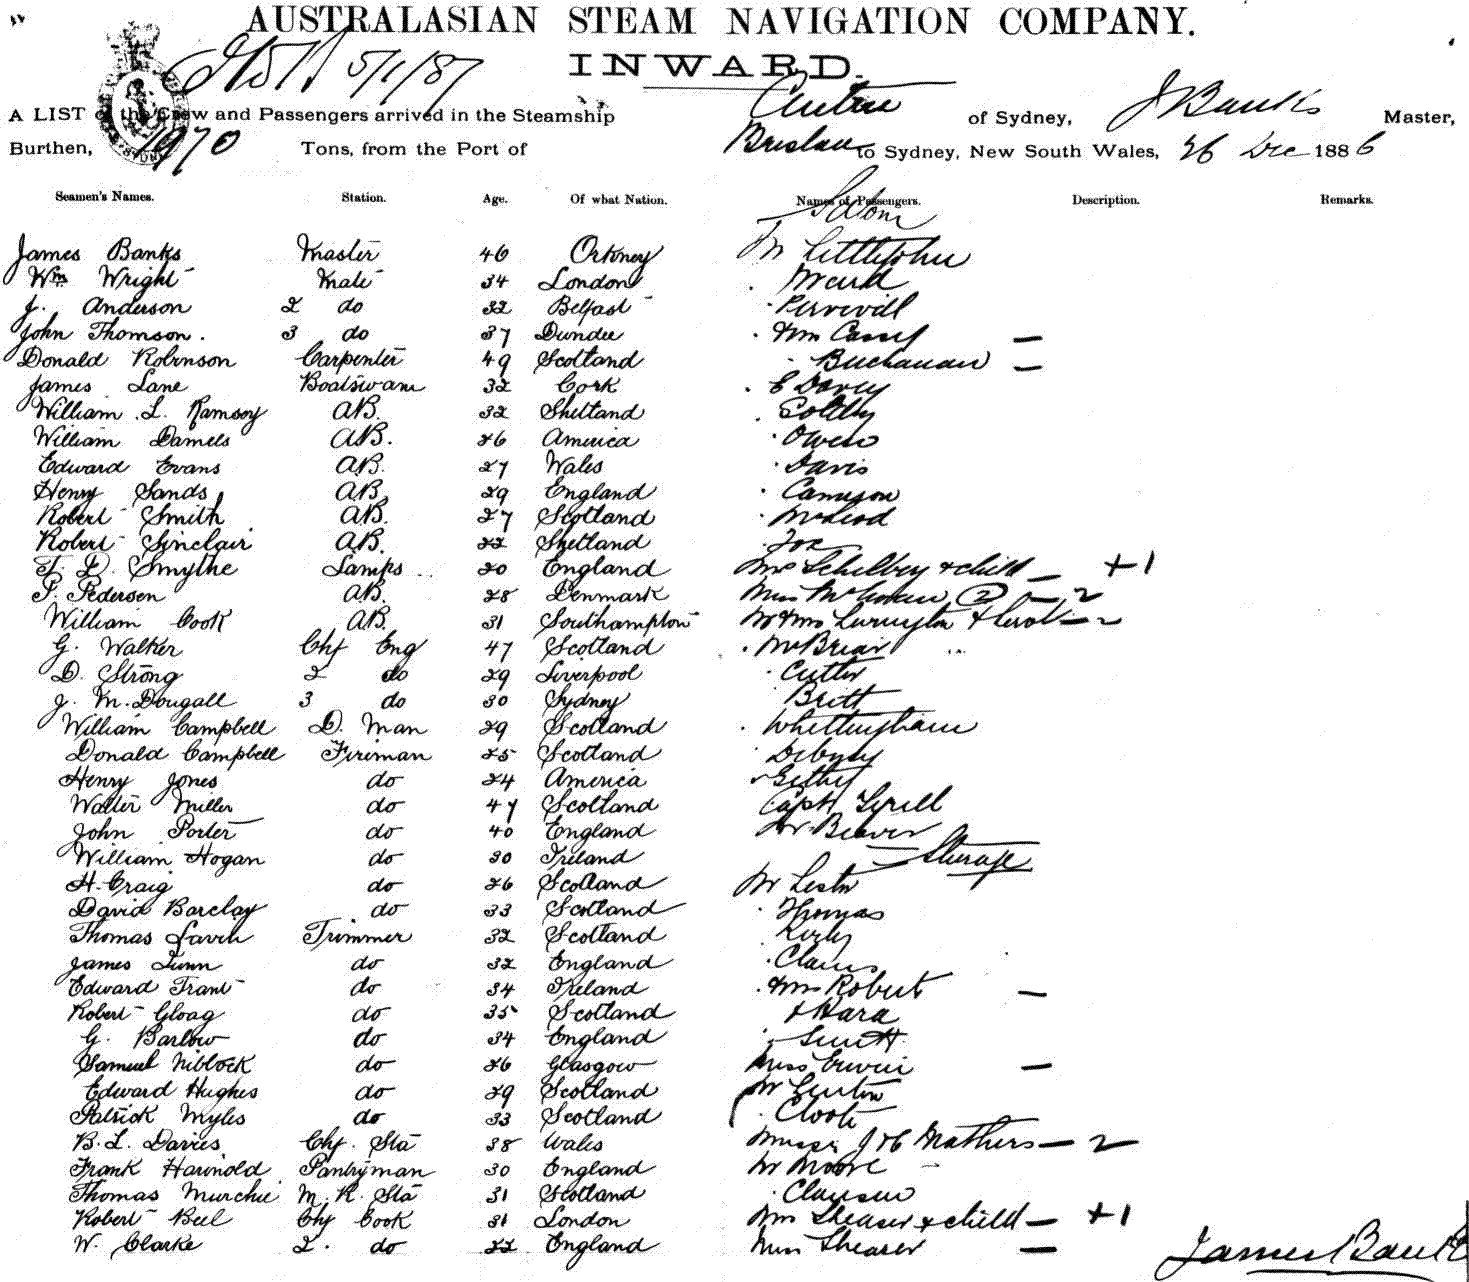 AUSTRALASIAN STEAM NAVIGATION COMPANY.
5/1/87 INWARD.
A LIST of the Crew and Passengers arrived in the Steamship of Sydney, J Banks Master,
Burthen, 1970 Tons, from the Port of Brisbane to Sydney, New South Wales, 26 Dec 1886
Seamen's Names. Station. Age. Of what Nation. Names of Passengers. Description. Remarks.
Saloon
James Banks Master 46 Orkney Mr Littlejohn
Wm Wright Mate 34 London Weird
J. Anderson 2 do 32 Belfast
John Thomson. 3 do 37 Dundee
Donald Robinson Carpenter 49 Scotland Buchanan —
James Lane Boatswain 32 Cork E Davey
William L. Ramsay AB. 32 Shetland
William Daniels AB. 26 America Owen
Edward Evans AB. 27 Wales Davis
Henry Sands AB. 29 England Cameron
Robert Smith AB. 27 Scotland McLeod
Robert Sinclair AB. 22 Shetland Fox
T. D. Smythe Lamps 20 England & child — +1
P. Pedersen AB. 28 Denmark Miss (2) — 2
William Cook AB. 31 Southampton Mr & Mrs — 2
G. Walker Chf Eng 47 Scotland McBriar
D. Strong 2 do 29 Liverpool Cutter
J. M. Dougall 3 do 30 Sydney Britt
William Campbell D. Man 29 Scotland Whittingham
Donald Campbell Fireman 25 Scotland
Henry Jones do 24 America
Walter Miller do 47 Scotland Capt Tyrill
John Porter do 40 England Beaver
William Hogan do 30 Ireland Steerage
H. Craig do 26 Scotland Mr Lester
David Barclay do 33 Scotland Thomas
Thomas Lavin Trimmer 32 Scotland
James Dunn do 32 England
Edward Trant do 34 Ireland Mrs Robert —
Robert Gloag do 35 Scotland
G. Barlow do 34 England Smith
Samuel Niblock do 26 Glasgow Miss —
Edward Hughes do 29 Scotland Mr
Patrick Myles do 33 Scotland
B. L. Davies Chf. Std 38 Wales J & C Mathers — 2
Frank Harinold Pantryman 30 England Mr Moore
Thomas Murchie M. R. Std 31 Scotland Clausen
Robert Bell Chf Cook 31 London Mrs Shearer & child — +1
W. Clarke 2. do 22 England Miss Shearer —
James Banks